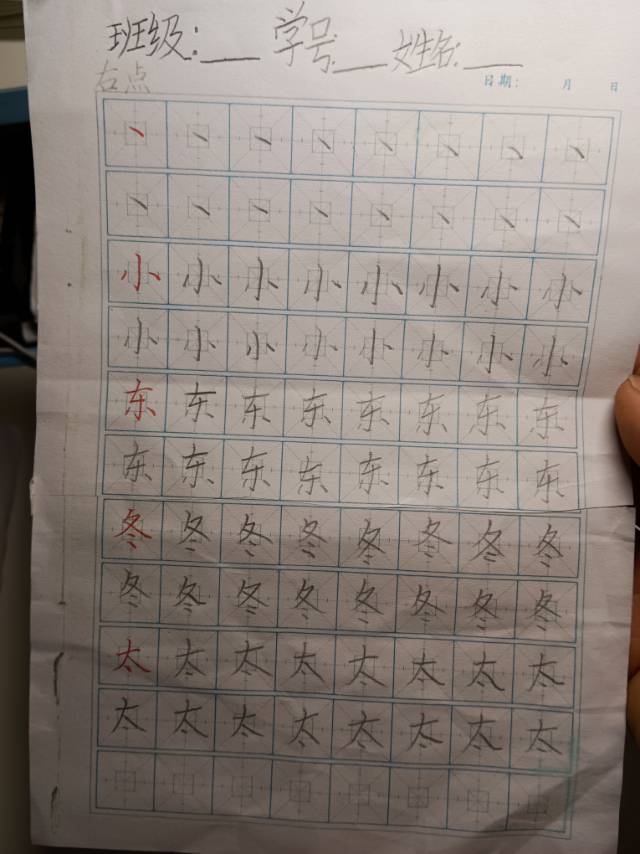 班级：___ 学号：___ 姓名：___
右点
日期： 月 日
丶 丶 丶 丶 丶 丶 丶 丶
丶 丶 丶 丶 丶 丶 丶 丶
小 小 小 小 小 小 小 小
小 小 小 小 小 小 小 小
东 东 东 东 东 东 东 东
东 东 东 东 东 东 东 东
冬 冬 冬 冬 冬 冬 冬 冬
冬 冬 冬 冬 冬 冬 冬 冬
太 太 太 太 太 太 太 太
太 太 太 太 太 太 太 太